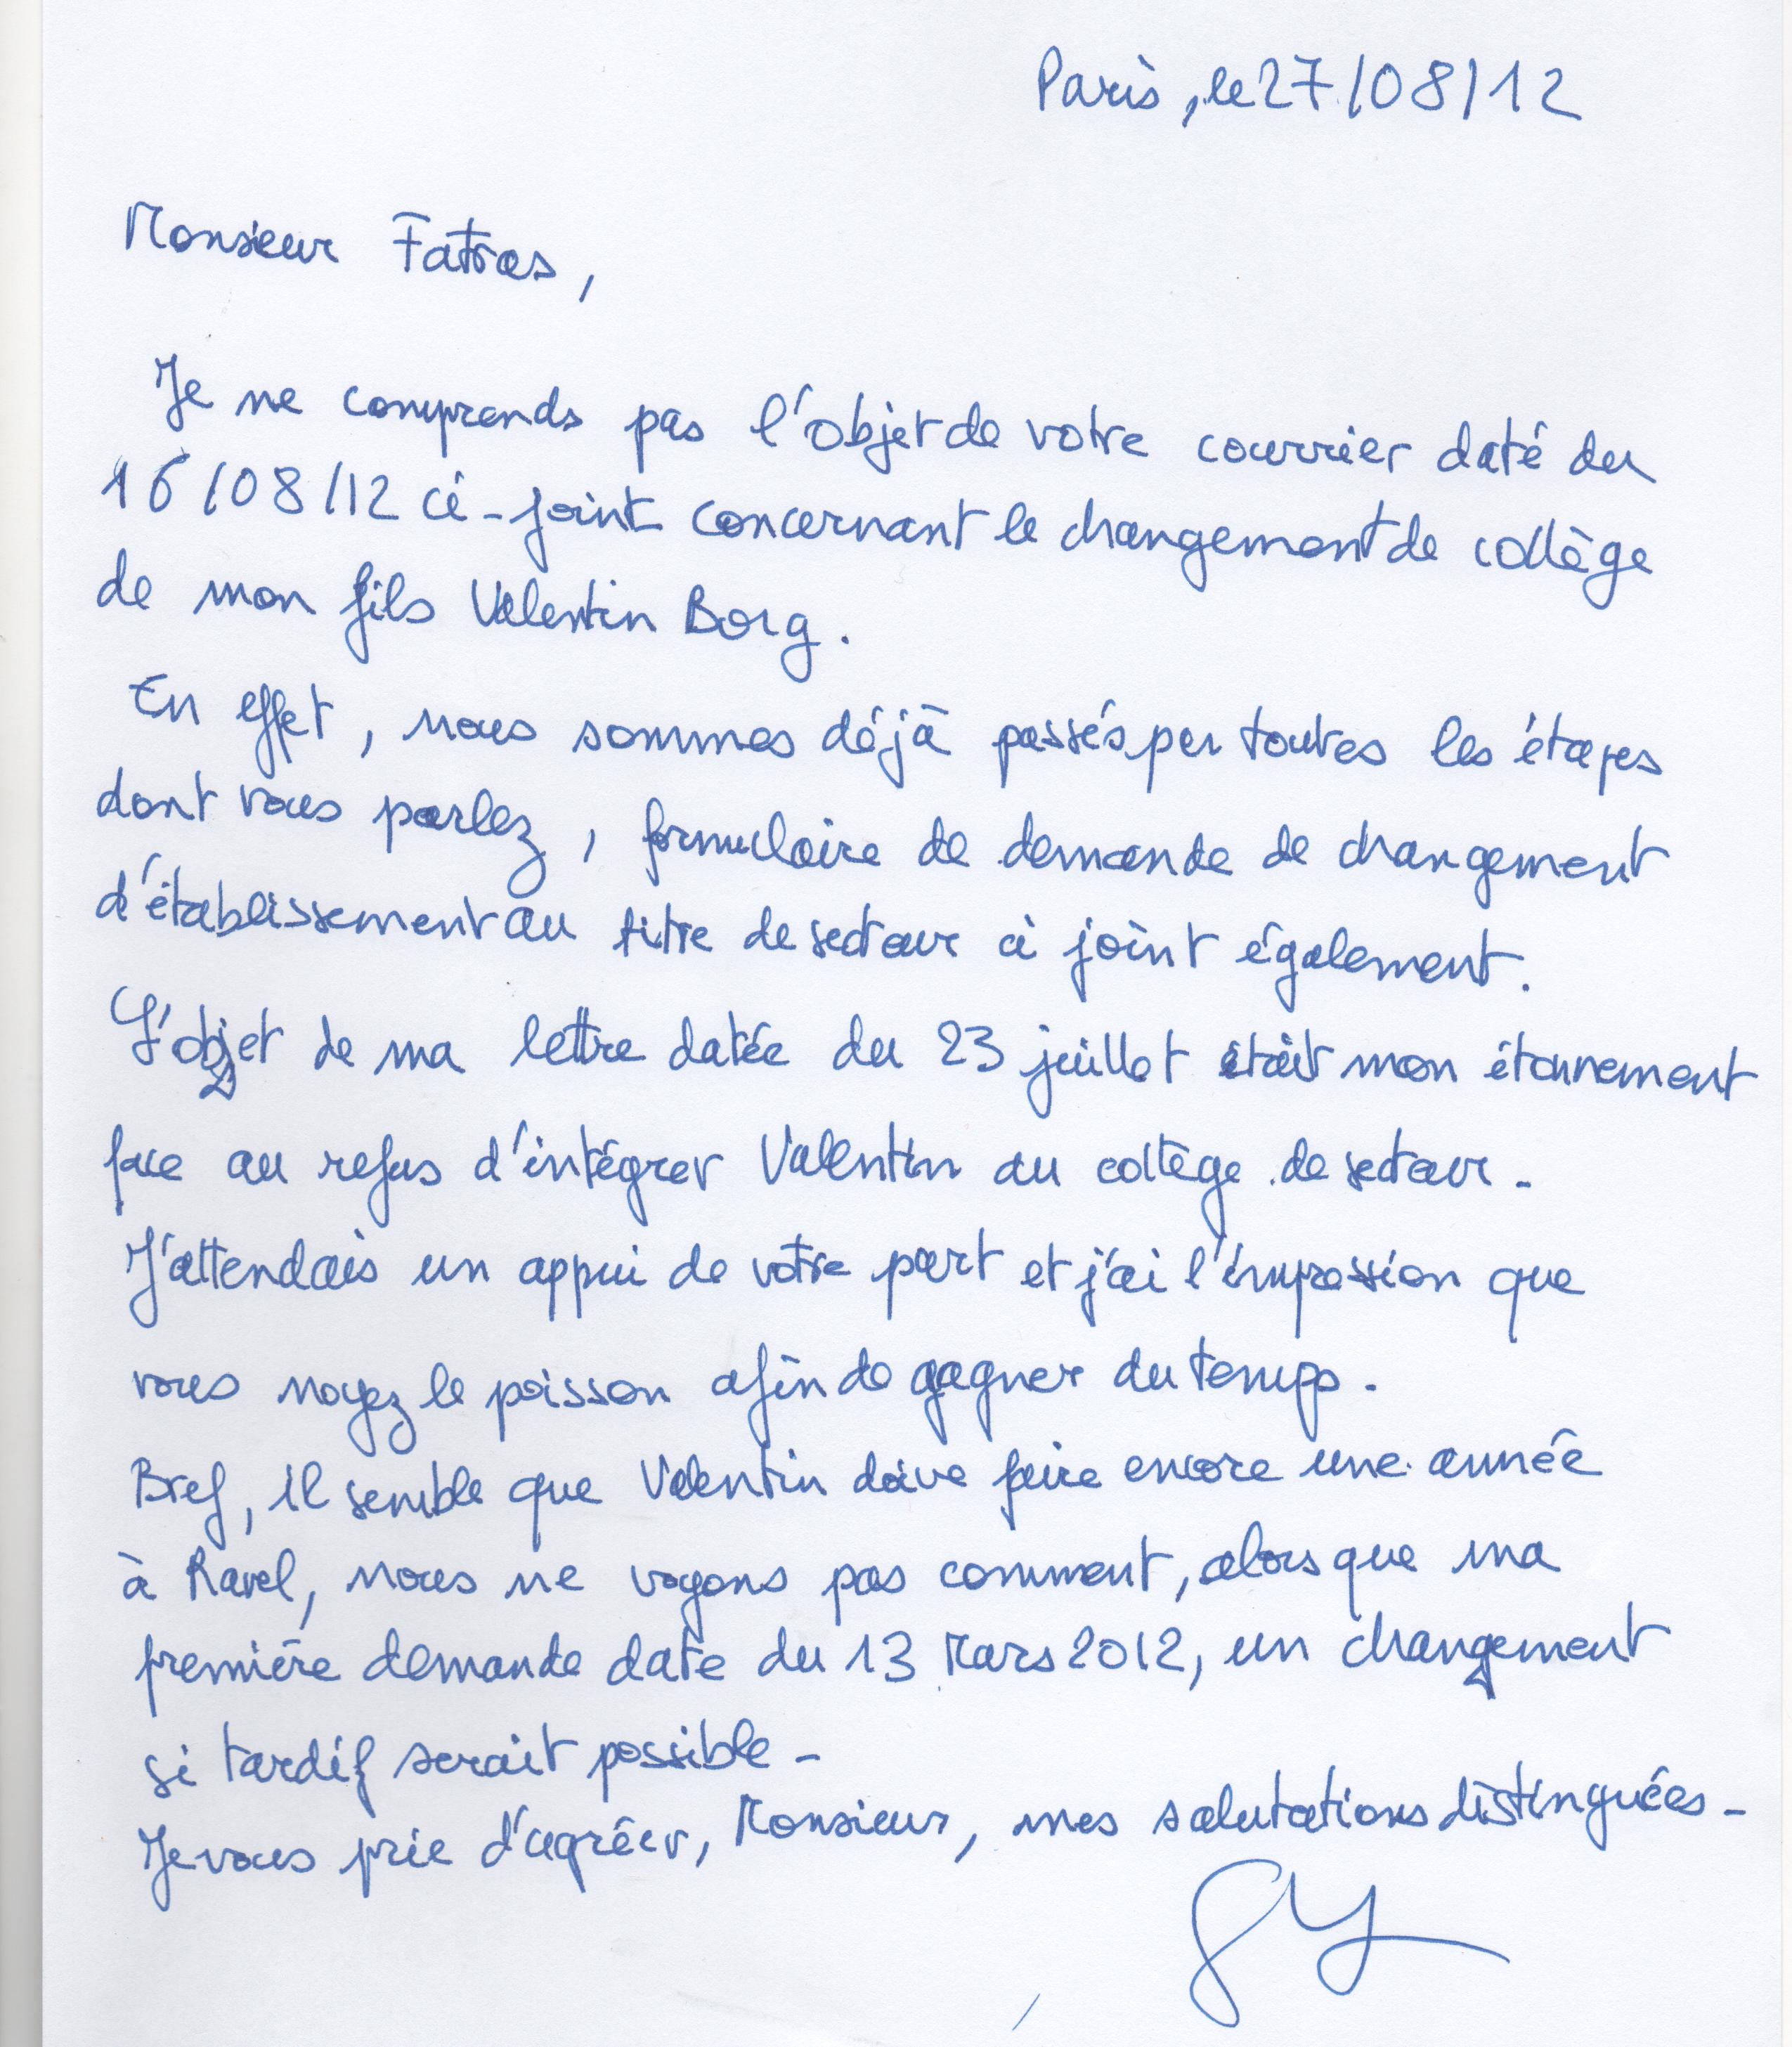 Paris, le 27/08/12
Monsieur Fatras,
Je ne comprends pas l'objet de votre courrier daté du
16/08/12 ci-joint concernant le changement de collège
de mon fils Valentin Borg.
En effet, nous sommes déjà passés par toutes les étapes
dont vous parlez, formulaire de demande de changement
d'établissement au titre de secteur ci joint également.
L'objet de ma lettre datée du 23 juillet était mon étonnement
face au refus d'intégrer Valentin au collège de secteur.
J'attendais un appui de votre part et j'ai l'impression que
vous noyez le poisson afin de gagner du temps.
Bref, il semble que Valentin doive faire encore une année
à Ravel, nous ne voyons pas comment, alors que ma
première demande date du 13 Mars 2012, un changement
si tardif serait possible -
Je vous prie d'agréer, Monsieur, mes salutations distinguées -